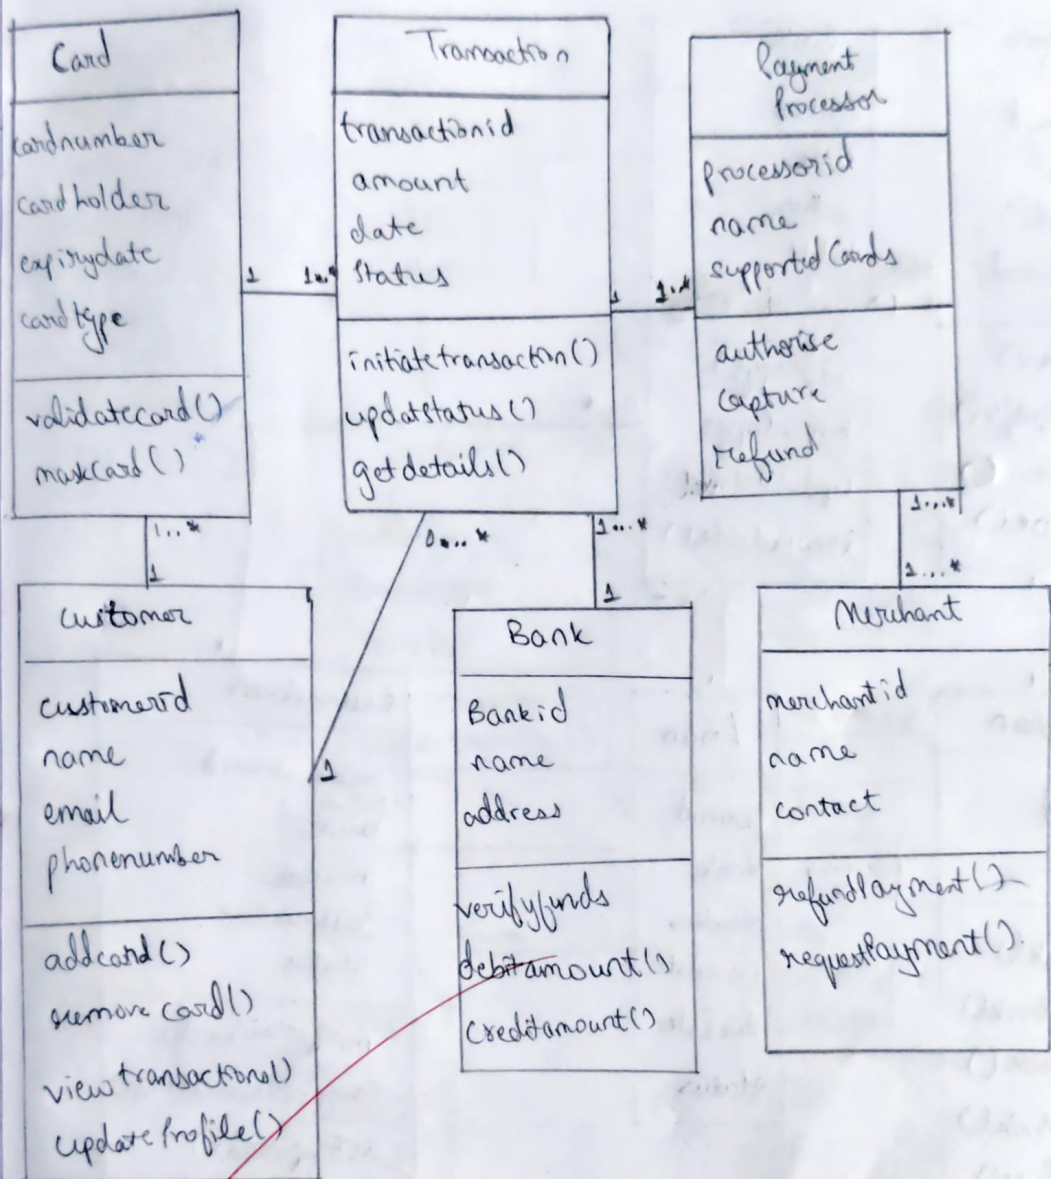 Card
cardnumber
cardholder
expirydate
cardtype
validatecard()
maskcard()
1
1..*
Transaction
transactionid
amount
date
status
initiatetransaction()
updatstatus()
getdetails()
1
1..*
Payment
Processor
processorid
name
supportedCards
authorise
capture
refund
1..*
1
0...*
1
1...*
1
1...*
1...*
Customer
customerid
name
email
phonenumber
addcard()
remove card()
view transactions()
updateProfile()
Bank
Bankid
name
address
verifyfunds
debitamount()
creditamount()
Merchant
merchantid
name
contact
refundPayment()
requestPayment()